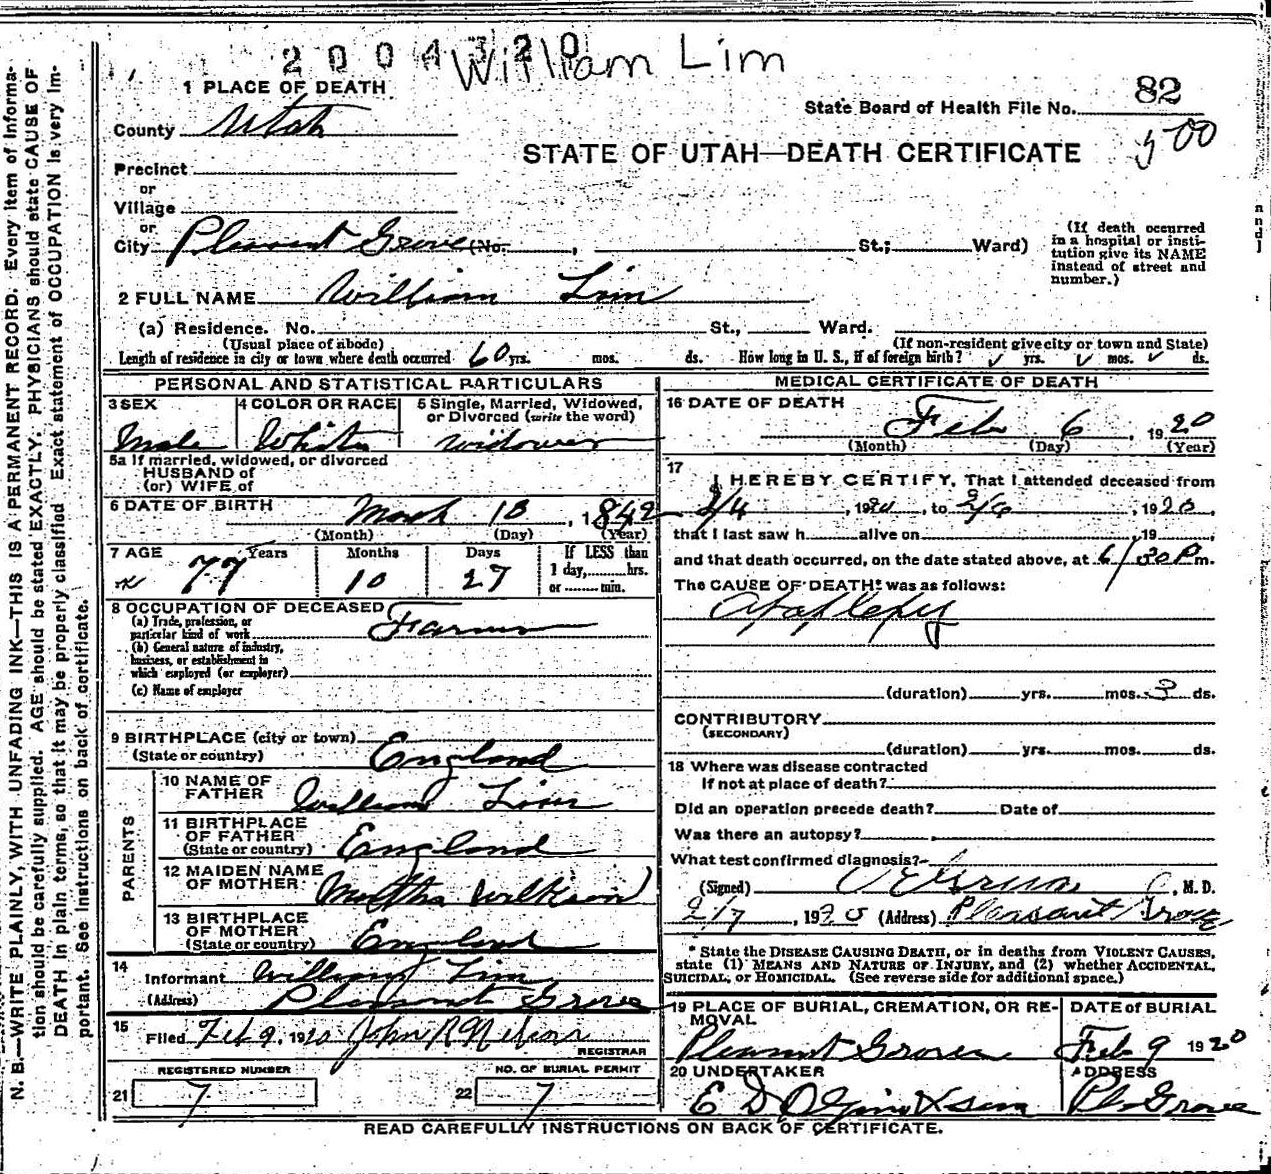 2004320
William Lim
1 PLACE OF DEATH
State Board of Health File No. 82
County Utah
500
STATE OF UTAH—DEATH CERTIFICATE
Precinct
or
Village
or
City Pleasant Grove (No. , St.; Ward)
(If death occurred
in a hospital or insti-
tution give its NAME
instead of street and
number.)
2 FULL NAME William Lim
(a) Residence. No. St., Ward.
(Usual place of abode) (If non-resident give city or town and State)
Length of residence in city or town where death occurred 60 yrs. mos. ds. How long in U. S., if of foreign birth? yrs. mos. ds.
PERSONAL AND STATISTICAL PARTICULARS
3 SEX 4 COLOR OR RACE 5 Single, Married, Widowed,
or Divorced (write the word)
Male White widower
5a If married, widowed, or divorced
HUSBAND of
(or) WIFE of
6 DATE OF BIRTH March 18, 1842
(Month) (Day) (Year)
7 AGE Years Months Days If LESS than
1 day, hrs.
or min.
77 10 27
8 OCCUPATION OF DECEASED
(a) Trade, profession, or
particular kind of work Farmer
(b) General nature of industry,
business, or establishment in
which employed (or employer)
(c) Name of employer
9 BIRTHPLACE (city or town)
(State or country) England
PARENTS
10 NAME OF
FATHER William Lim
11 BIRTHPLACE
OF FATHER
(State or country) England
12 MAIDEN NAME
OF MOTHER Martha Wilkison
13 BIRTHPLACE
OF MOTHER
(State or country) England
14
Informant William Lim
(Address) Pleasant Grove
15
Filed Feb 9, 1920 John R Nelson
REGISTRAR
REGISTERED NUMBER NO. OF BURIAL PERMIT
21 7 22 7
MEDICAL CERTIFICATE OF DEATH
16 DATE OF DEATH
Feb 6, 1920
(Month) (Day) (Year)
17
I HEREBY CERTIFY, That I attended deceased from
2/4, 1920, to 2/6, 1920,
that I last saw h alive on , 19 ,
and that death occurred, on the date stated above, at 6/30 P m.
The CAUSE OF DEATH* was as follows:
Apoplexy
(duration) yrs. mos. 3 ds.
CONTRIBUTORY
(SECONDARY)
(duration) yrs. mos. ds.
18 Where was disease contracted
If not at place of death?
Did an operation precede death? Date of
Was there an autopsy?
What test confirmed diagnosis?
(Signed) , M. D.
2/7, 1920 (Address) Pleasant Grove
* State the DISEASE CAUSING DEATH, or in deaths from VIOLENT CAUSES,
state (1) MEANS AND NATURE OF INJURY, and (2) whether ACCIDENTAL,
SUICIDAL, or HOMICIDAL. (See reverse side for additional space.)
19 PLACE OF BURIAL, CREMATION, OR RE-
MOVAL
DATE of BURIAL
Pleasant Grove Feb 9 1920
20 UNDERTAKER ADDRESS
E D Pl. Grove
READ CAREFULLY INSTRUCTIONS ON BACK OF CERTIFICATE.
N. B.—WRITE PLAINLY, WITH UNFADING INK—THIS IS A PERMANENT RECORD. Every item of informa-
tion should be carefully supplied. AGE should be stated EXACTLY. PHYSICIANS should state CAUSE OF
DEATH in plain terms, so that it may be properly classified. Exact statement of OCCUPATION is very im-
portant. See instructions on back of certificate.